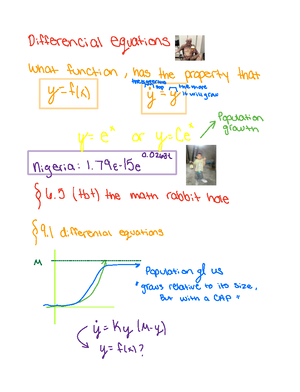 Differencial equations
what function, has the property that
y = f(x)
the more
it will grow
ẏ = y
Population
growth
y = e^x or y = Ce^x
Nigeria: 1.79E-15e
§ 6.5 (tbt) the math rabbit hole
§ 9.1 differential equations
M
Population of us
"grows relative to its size,
But with a CAP"
ẏ = Ky (M-y)
y = f(x)?